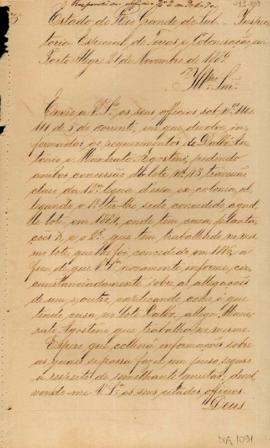 Estado do Rio Grande do Sul. Inspe
ctoria Especial de Terras e Colonisação em
Porto Alegre, de Novembro de
Illmo. Snr.
Envio a V.S. os seus officios sob nos. 110 e
111 de 5 do corrente, em que devolve in
formados os requerimentos de Dalbó An
tonio e Agostini, pedindo
ambos concessão do lote no. 43, travessão
da 13ª legua dessa ex-colonia, al
legando o 1º ter-lhe sido concedido aquel
le lote em 1884, onde tem casa, planta
ções &, e o 2º que tem trabalhado no mes
mo lote, que lhe foi concedido em 1886, a
fim de que V.S. novamente informe, cir
cumstanciadamente sobre as allegações
de um e outro, verificando como é que
tendo casa, no lote Dalbó, allega
Agostini que trabalha no mesmo.
Espero que colherá informações sobre
as quaes se possa fazer um juizo seguro
a respeito de semelhante questão, devol
vendo-me V.S. os seus citados officios.
Deus